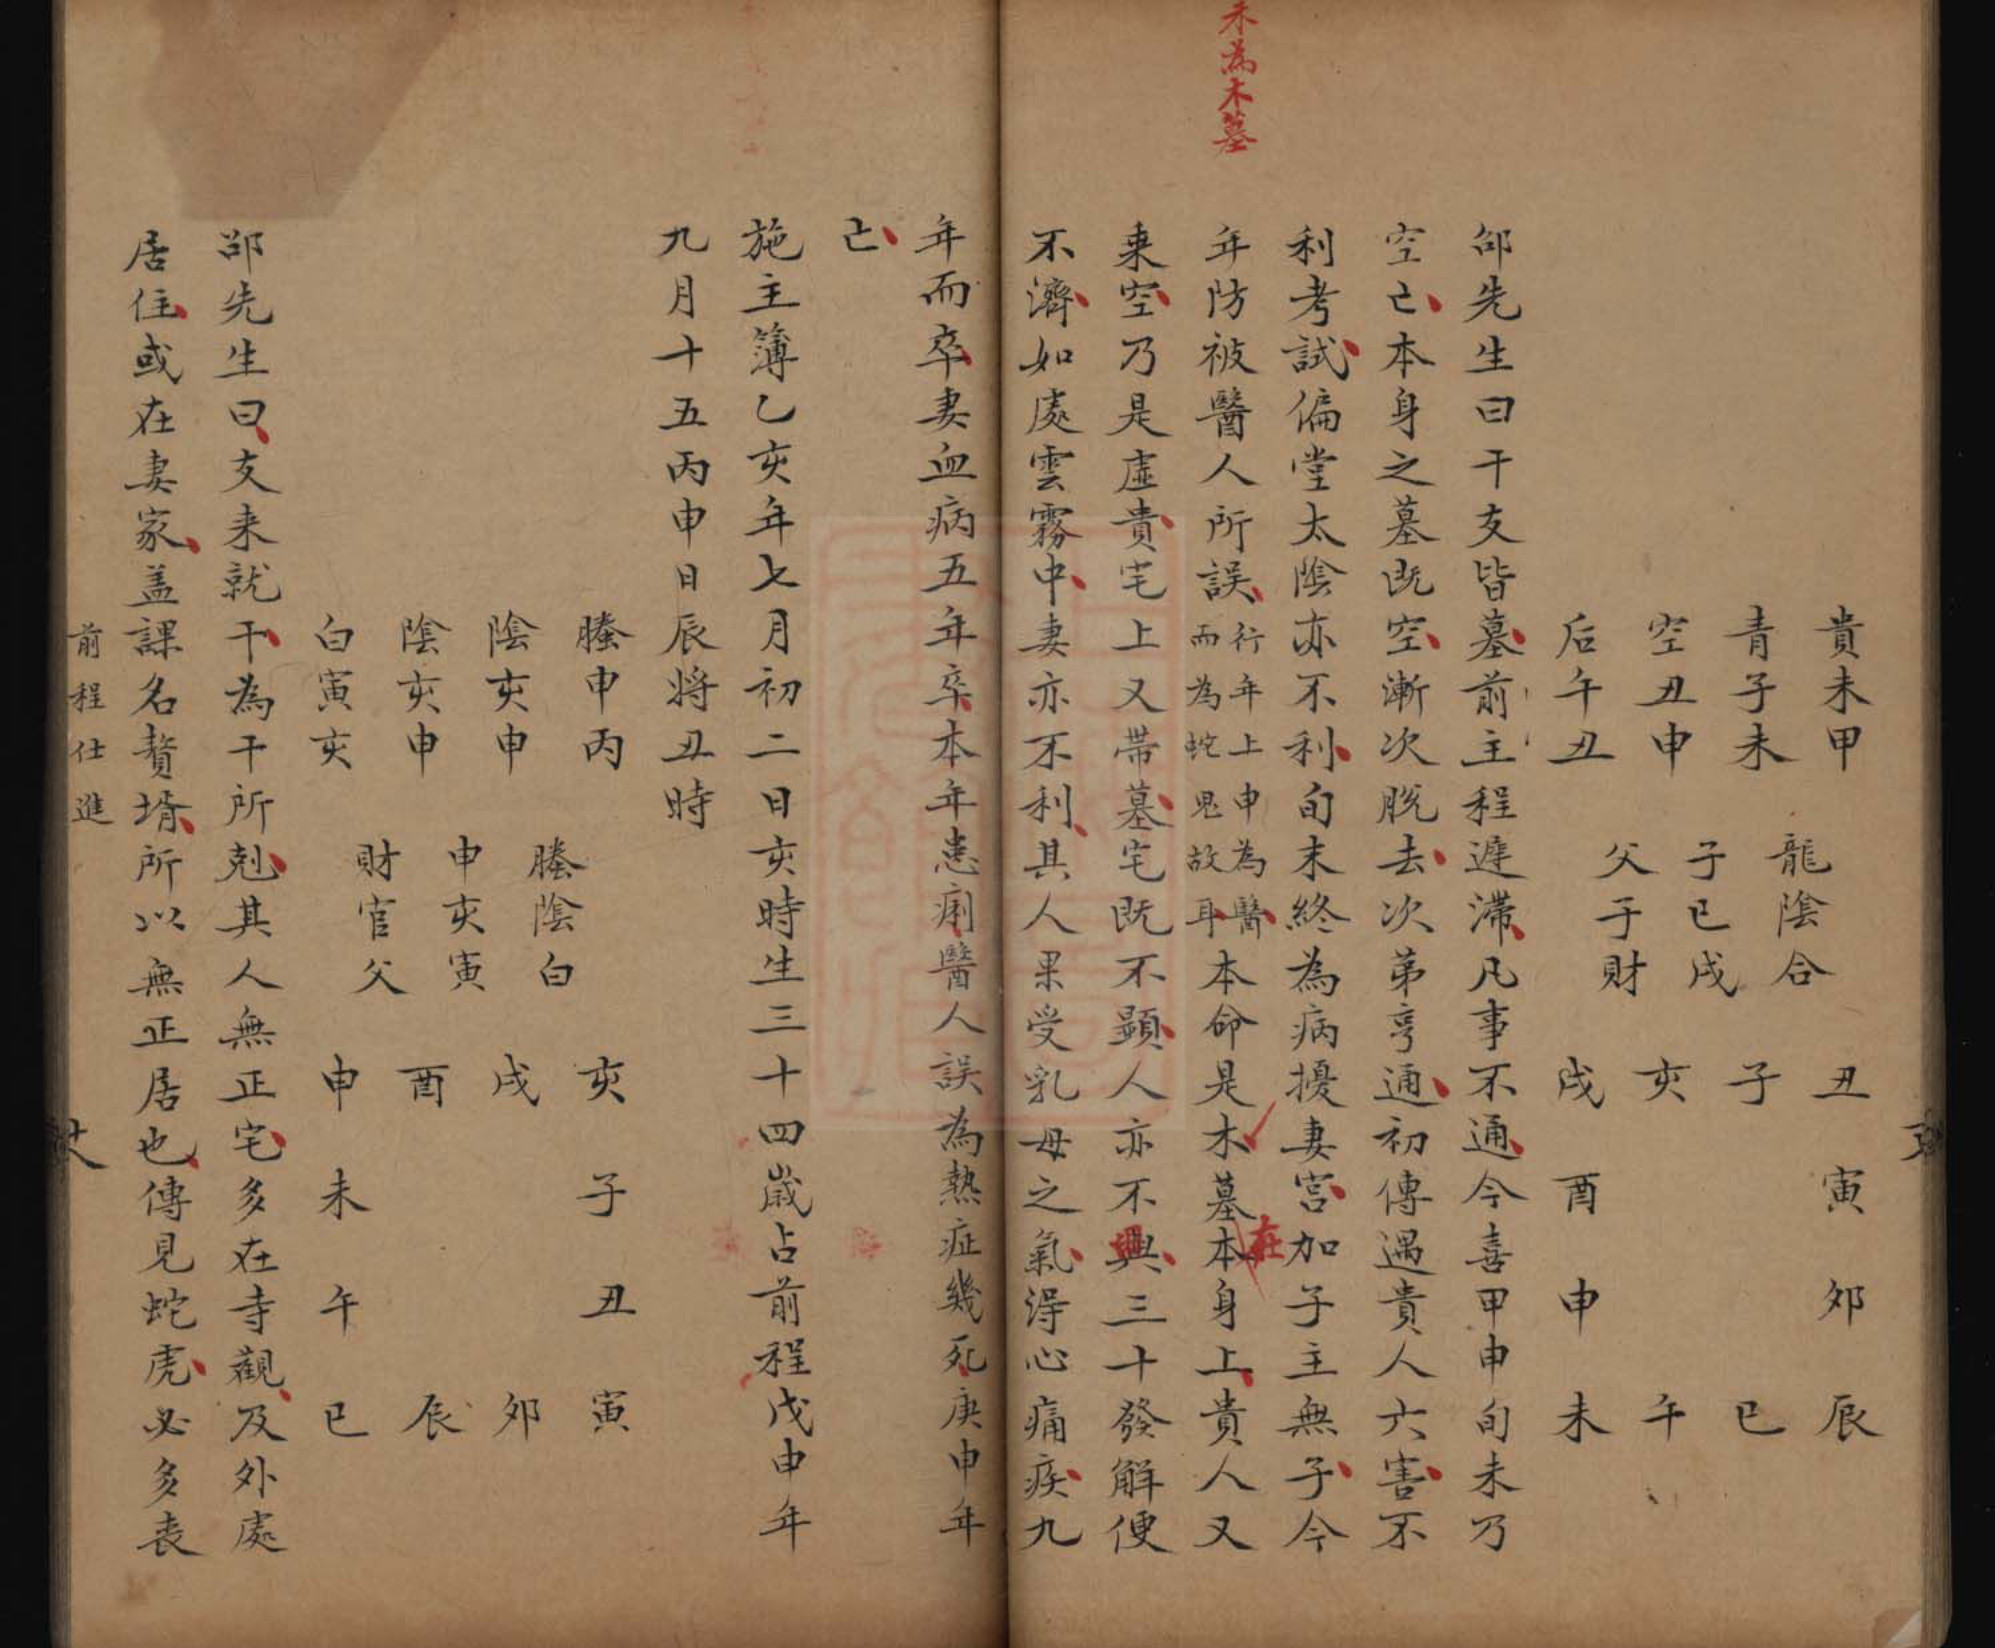 未為木墓
貴未甲
青子未
空丑申
后午丑
龍陰合
子巳戌
父子財
丑寅卯辰
子巳
亥午
戌酉申未
邵先生曰干支皆墓前主程遲滯凡事不通今喜甲申旬未乃
空亡本身之墓既空漸次脫去次第亨通初傳遇貴人六害不
利考試偏堂太陰亦不利旬末終為病擾妻宮加子主無子今
年防被醫人所誤行年上申為醫而為蛇鬼故耳本命是木墓本身上貴人又
在
乘空乃是虛貴宅上又帶墓宅既不顯人亦不興三十發解便
不濟如處雲霧中妻亦不利其人果受乳母之氣得心痛疾九
年而卒妻血病五年卒本年患痢醫人誤為熱症幾死庚申年
亡
施主簿乙亥年七月初二日亥時生三十四歲占前程戊申年
九月十五丙申日辰將丑時
螣申丙
陰亥申
陰亥申
白寅亥
螣陰白
申亥寅
財官父
亥子丑寅
戌卯
酉辰
申未午巳
邵先生曰支來就干為干所剋其人無正宅多在寺觀及外處
居住或在妻家蓋課名贅壻所以無正居也傳見蛇虎必多喪
前程仕進